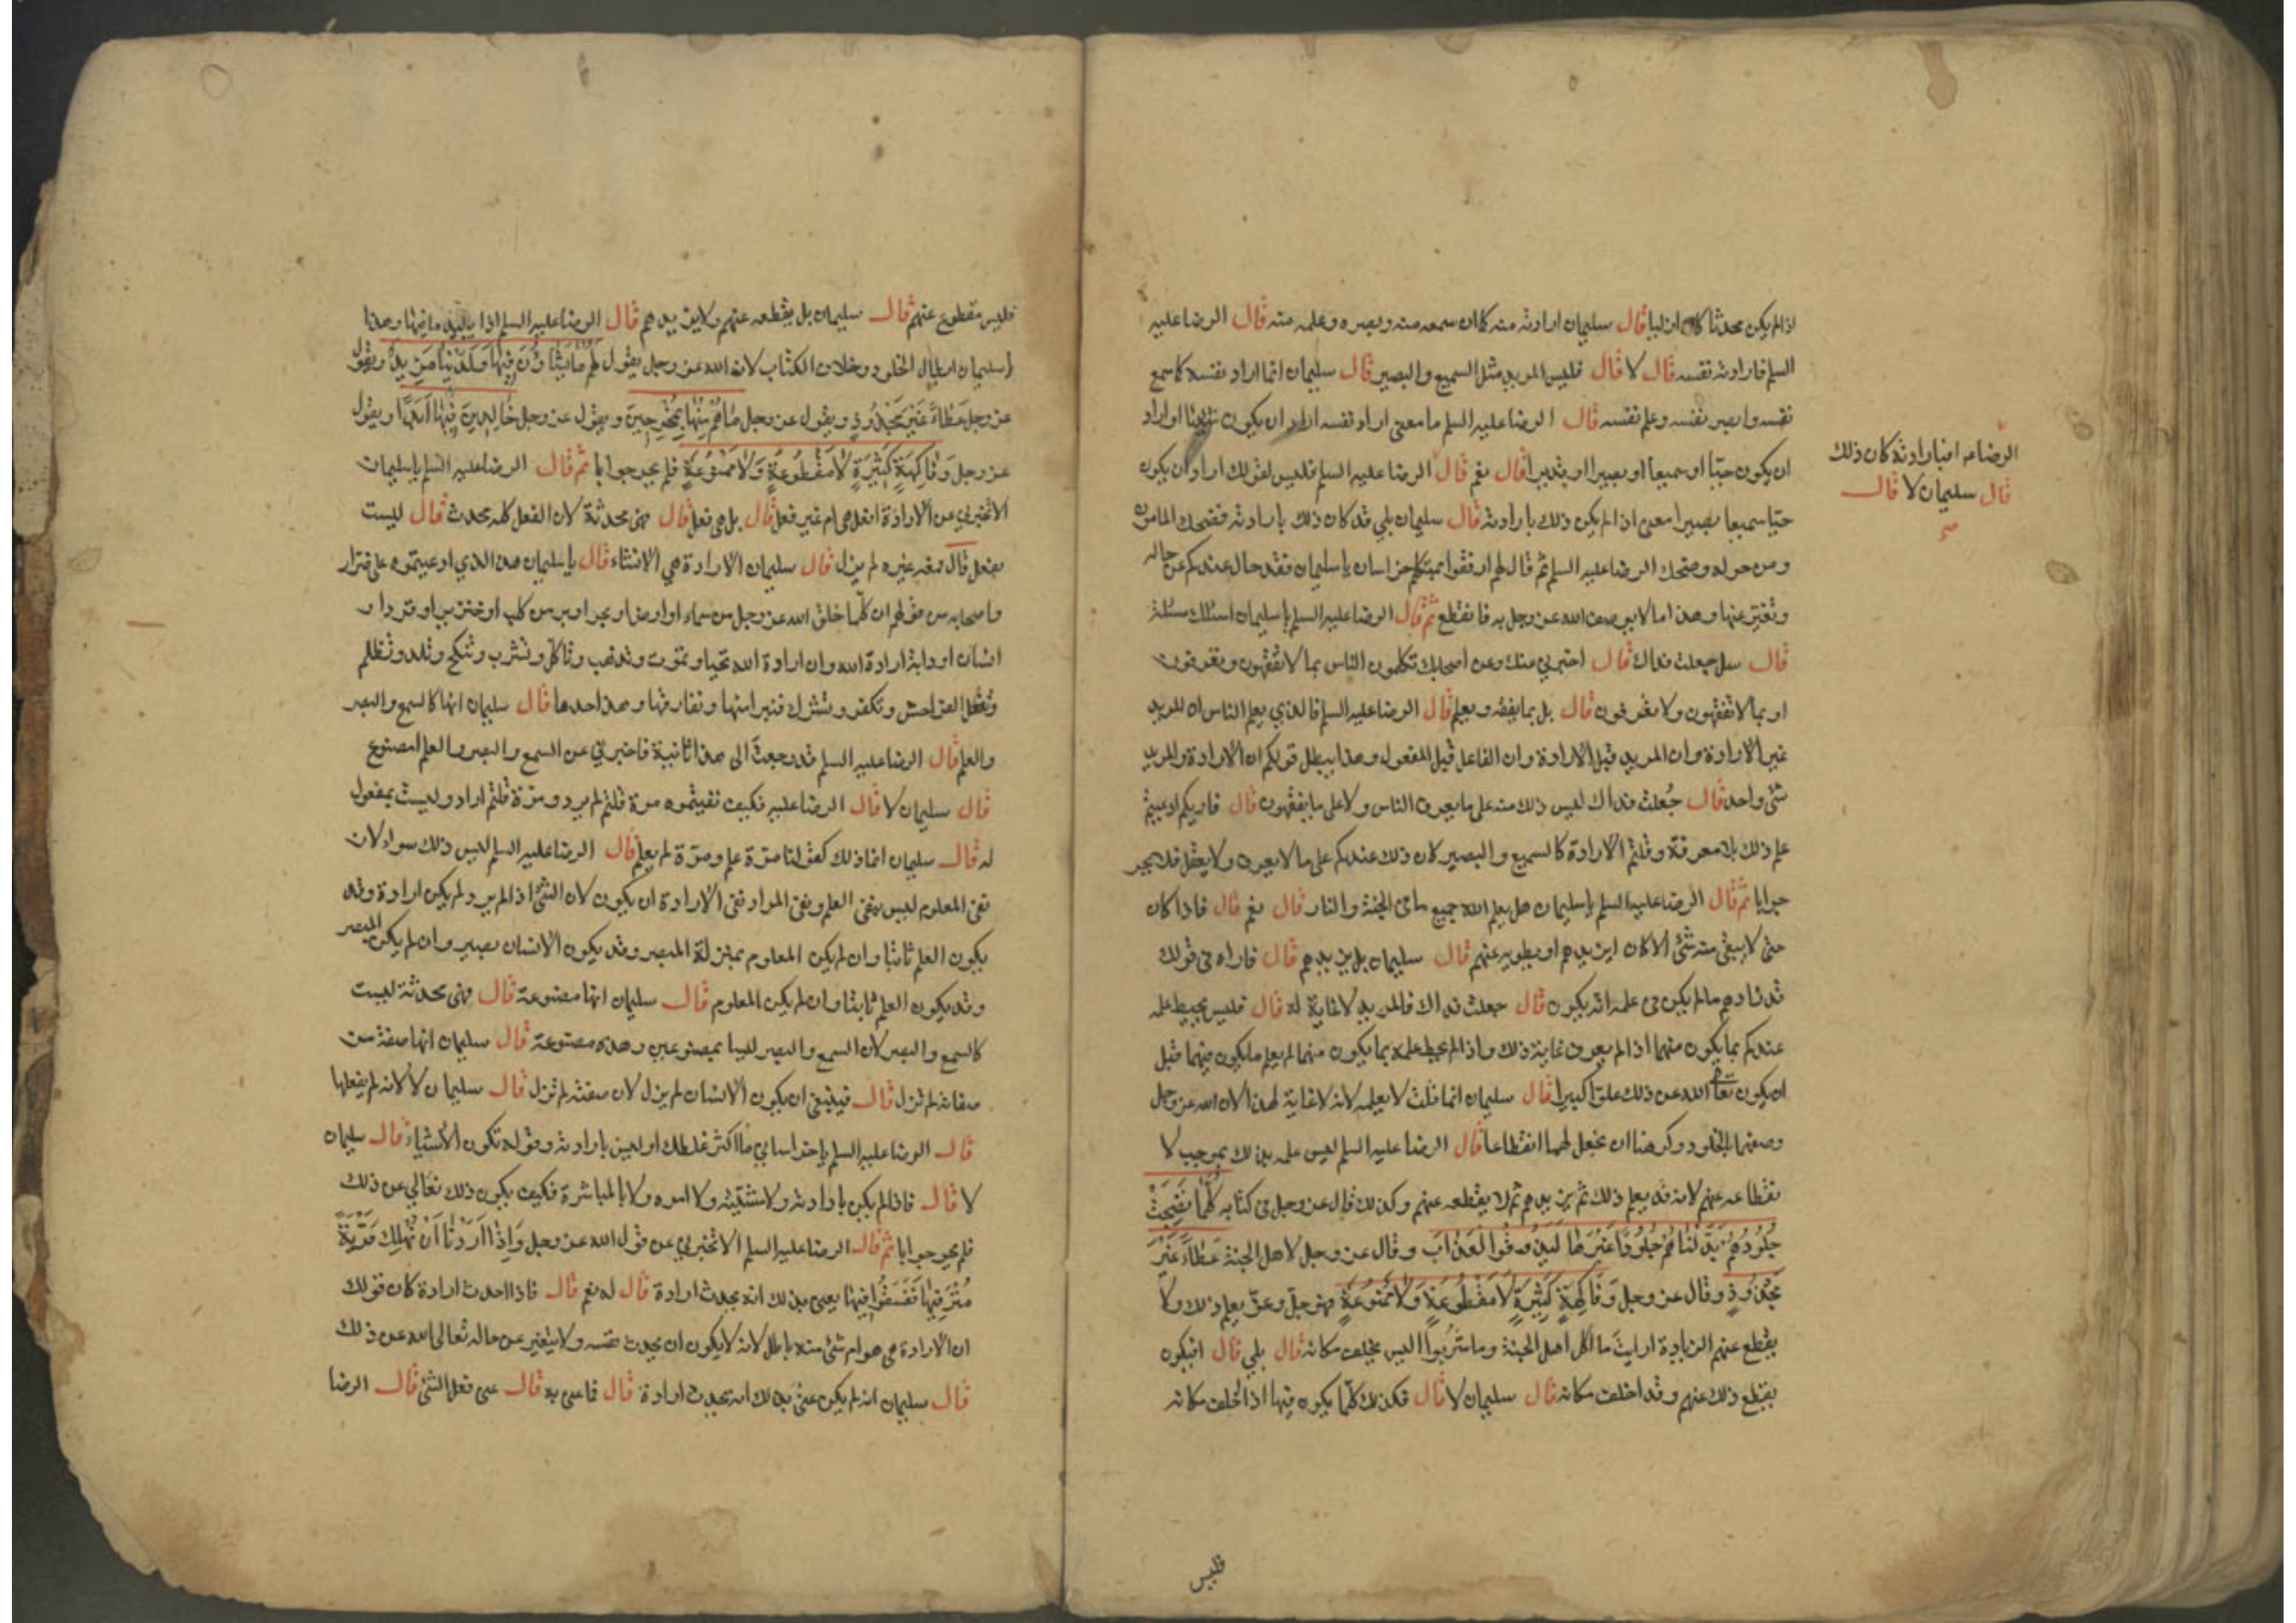 اذا لم يكن محدثا كان ازليا قال سليمان ارادته منه كما ان سمعه منه وبصره وعلمه منه قال الرضا عليه
السلم فارادته نفسه قال لا قال فليس المريد مثل السميع والبصير قال سليمان انما اراد نفسه كما سمع
نفسه وابصر نفسه وعلم نفسه قال الرضا عليه السلم ما معنى اراد نفسه اراد ان يكون شيئا او اراد
ان يكون حيّا او سميعا او بصيرا او قديرا قال نعم قال الرضا عليه السلم فليس لقولك اراد ان يكون
حيّا سميعا بصيرا معنى اذا لم يكن ذلك بارادته قال سليمان بلي قد كان ذلك بارادته فضحك المامون
ومن حوله وضحك الرضا عليه السلم ثم قال لهم ارفقوا بمتكلم خراسان يا سليمان فقد حال عندكم عن حاله
وتغيّر عنها وهذا ما لا يوصف الله عز وجل به فانقطع ثم قال الرضا عليه السلم يا سليمان اسئلك مسئلة
قال سل جعلت فداك قال اخبرني عنك وعن اصحابك تكلمون الناس بما لا تفقهون وتعرفون
او بما لا تفقهون ولا تعرفون قال بل بما يفقه ويعلم قال الرضا عليه السلم فالذي يعلم الناس ان المريد
غير الارادة وان المريد قبل الارادة وان الفاعل قبل المفعول وهذا يبطل قولكم ان الارادة والمريد
شئ واحد قال جُعلت فداك ليس ذلك منه على ما يعرف الناس ولا على ما يفقهون قال فاريكم ادعيتم
علم ذلك بلا معرفة وقلتم الارادة كالسميع والبصير كان ذلك عندكم على ما لا يعرف ولا يعقل فلم يحر
جوابا ثم قال الرضا عليه السلم يا سليمان هل يعلم الله جميع ما في الجنة والنار قال نعم قال فاذا كان
حتى لا يبقى منه شئ الا كان ايزيدهم او يطويه عنهم قال سليمان بل يزيدهم قال فاراه في قولك
قد زادهم ما لم يكن في علمه انه يكون قال جعلت فداك فالمريد لا غاية له قال فليس يحيط علمه
عندكم بما يكون منهما اذا لم يعرف غاية ذلك واذا لم يحط علمه بما يكون منهما لم يعلم ما يكون فيهما قبل
ان يكون تعالى الله عن ذلك علوا كبيرا قال سليمان انما قلت لا يعلمه لانه لا غاية لهذا لان الله عز وجل
وصفهما بالخلود وكرهنا ان نجعل لهما انقطاعا قال الرضا عليه السلم ليس علمه بذلك بموجب لا
نقطاعه عنهم لانه قد يعلم ذلك ثم يزيدهم ثم لا يقطعه عنهم وكذلك قال عز وجل في كتابه كُلَّما نَضِجَتْ
جُلُودُهُمْ بَدَّلْنَاهُمْ جُلُودًا غَيْرَهَا لِيَذُوقُوا الْعَذَابَ وقال عز وجل لاهل الجنة عَطَاءً غَيْرَ
مَجْذُوذٍ وقال عز وجل وَفَاكِهَةٍ كَثِيرَةٍ لَا مَقْطُوعَةٍ وَلَا مَمْنُوعَةٍ فهو جل وعز يعلم ذلك ولا
يقطع عنهم الزيادة ارايت ما اكل اهل الجنة وما شربوا اليس يخلف مكانه قال بلي قال افيكون
يقطع ذلك عنهم وقد اخلف مكانه قال سليمان لا قال فكذلك كلّما يكون فيها اذا اخلف مكانه
الرضا ع افبارادته كان ذلك
قال سليمان لا قال
صح
فليس
فليس مقطوع عنهم قال سليمان بل يقطعه عنهم ولا يزيدهم قال الرضا عليه السلم اذا يبيد ما فيها وهذا
يا سليمان ابطال الخلود وخلاف الكتاب لان الله عز وجل يقول لَهُمْ مَا يَشَاؤُنَ فِيهَا وَلَدَيْنَا مَزِيدٌ ويقول
عز وجل عَطَاءً غَيْرَ مَجْذُوذٍ ويقول عز وجل مَا هُمْ مِنْهَا بِمُخْرَجِينَ ويقول عز وجل خَالِدِينَ فِيهَا أَبَدًا ويقول
عز وجل وَفَاكِهَةٍ كَثِيرَةٍ لَا مَقْطُوعَةٍ وَلَا مَمْنُوعَةٍ فلم يحر جوابا ثم قال الرضا عليه السلم يا سليمان
الا تخبرني عن الارادة افعل هي ام غير فعل قال بل هي فعل قال فهي محدثة لان الفعل كله محدث قال ليست
بفعل قال فمعه غيره لم يزل قال سليمان الارادة هي الانشاء قال يا سليمان هذا الذي ادعيتموه على ضرار
واصحابه من قولهم ان كلّما خلق الله عز وجل من سماء او ارض او بحر او بر من كلب او خنزير او قرد او
انسان او دابة ارادة الله وان ارادة الله تحيا وتموت وتذهب وتاكل وتشرب وتنكح وتلد وتظلم
وتفعل الفواحش وتكفر وتشرك فنبرا منها ونفارقها وهذا حدها قال سليمان انها كالسمع والبصر
والعلم قال الرضا عليه السلم قد رجعت الى هذا ثانية فاخبرني عن السمع والبصر والعلم امصنوع
قال سليمان لا قال الرضا عليه فكيف نفيتموه مرة قلتم لم يرد ومرّة قلتم اراد وليست بمفعول
له قال سليمان انما ذلك كقولنا مرّة علم ومرّة لم يعلم قال الرضا عليه السلم ليس ذلك سواء لان
نفى المعلوم ليس بنفى العلم ونفى المراد نفى الارادة ان يكون لان الشئ اذا لم يرد لم يكن ارادة وقد
يكون العلم ثابتا وان لم يكن المعلوم بمنزلة المبصر وقد يكون الانسان بصيرا وان لم يكن المبصر
وقد يكون العلم ثابتا وان لم يكن المعلوم قال سليمان انها مصنوعة قال فهى محدثة ليست
كالسمع والبصر لان السمع والبصر ليسا بمصنوعين وهذه مصنوعة قال سليمان انها صفة من
صفاته لم تزل قال فينبغي ان يكون الانسان لم يزل لان صفته لم تزل قال سليمان لا لانه لم يفعلها
قال الرضا عليه السلم يا خراساني ما اكثر غلطك او ليس بارادته وقوله تكون الاشياء قال سليمان
لا قال فاذا لم يكن بارادته ولا مشيّته ولا امره ولا بالمباشرة فكيف يكون ذلك تعالي عن ذلك
فلم يحر جوابا ثم قال الرضا عليه السلم الا تخبرني عن قول الله عز وجل وَإِذَا أَرَدْنَا أَنْ نُهْلِكَ قَرْيَةً
مُتْرَفِيهَا فَفَسَقُوا فِيهَا يعنى بذلك انه يحدث ارادة قال له نعم قال فاذا احدث ارادة كان قولك
ان الارادة هي هو ام شئ منه باطلا لانه لا يكون ان يحدث نفسه ولا يتغير عن حاله تعالى الله عن ذلك
قال سليمان انه لم يكن عنى بذلك انه يحدث ارادة قال فما عنى به قال عنى فعل الشئ قال الرضا